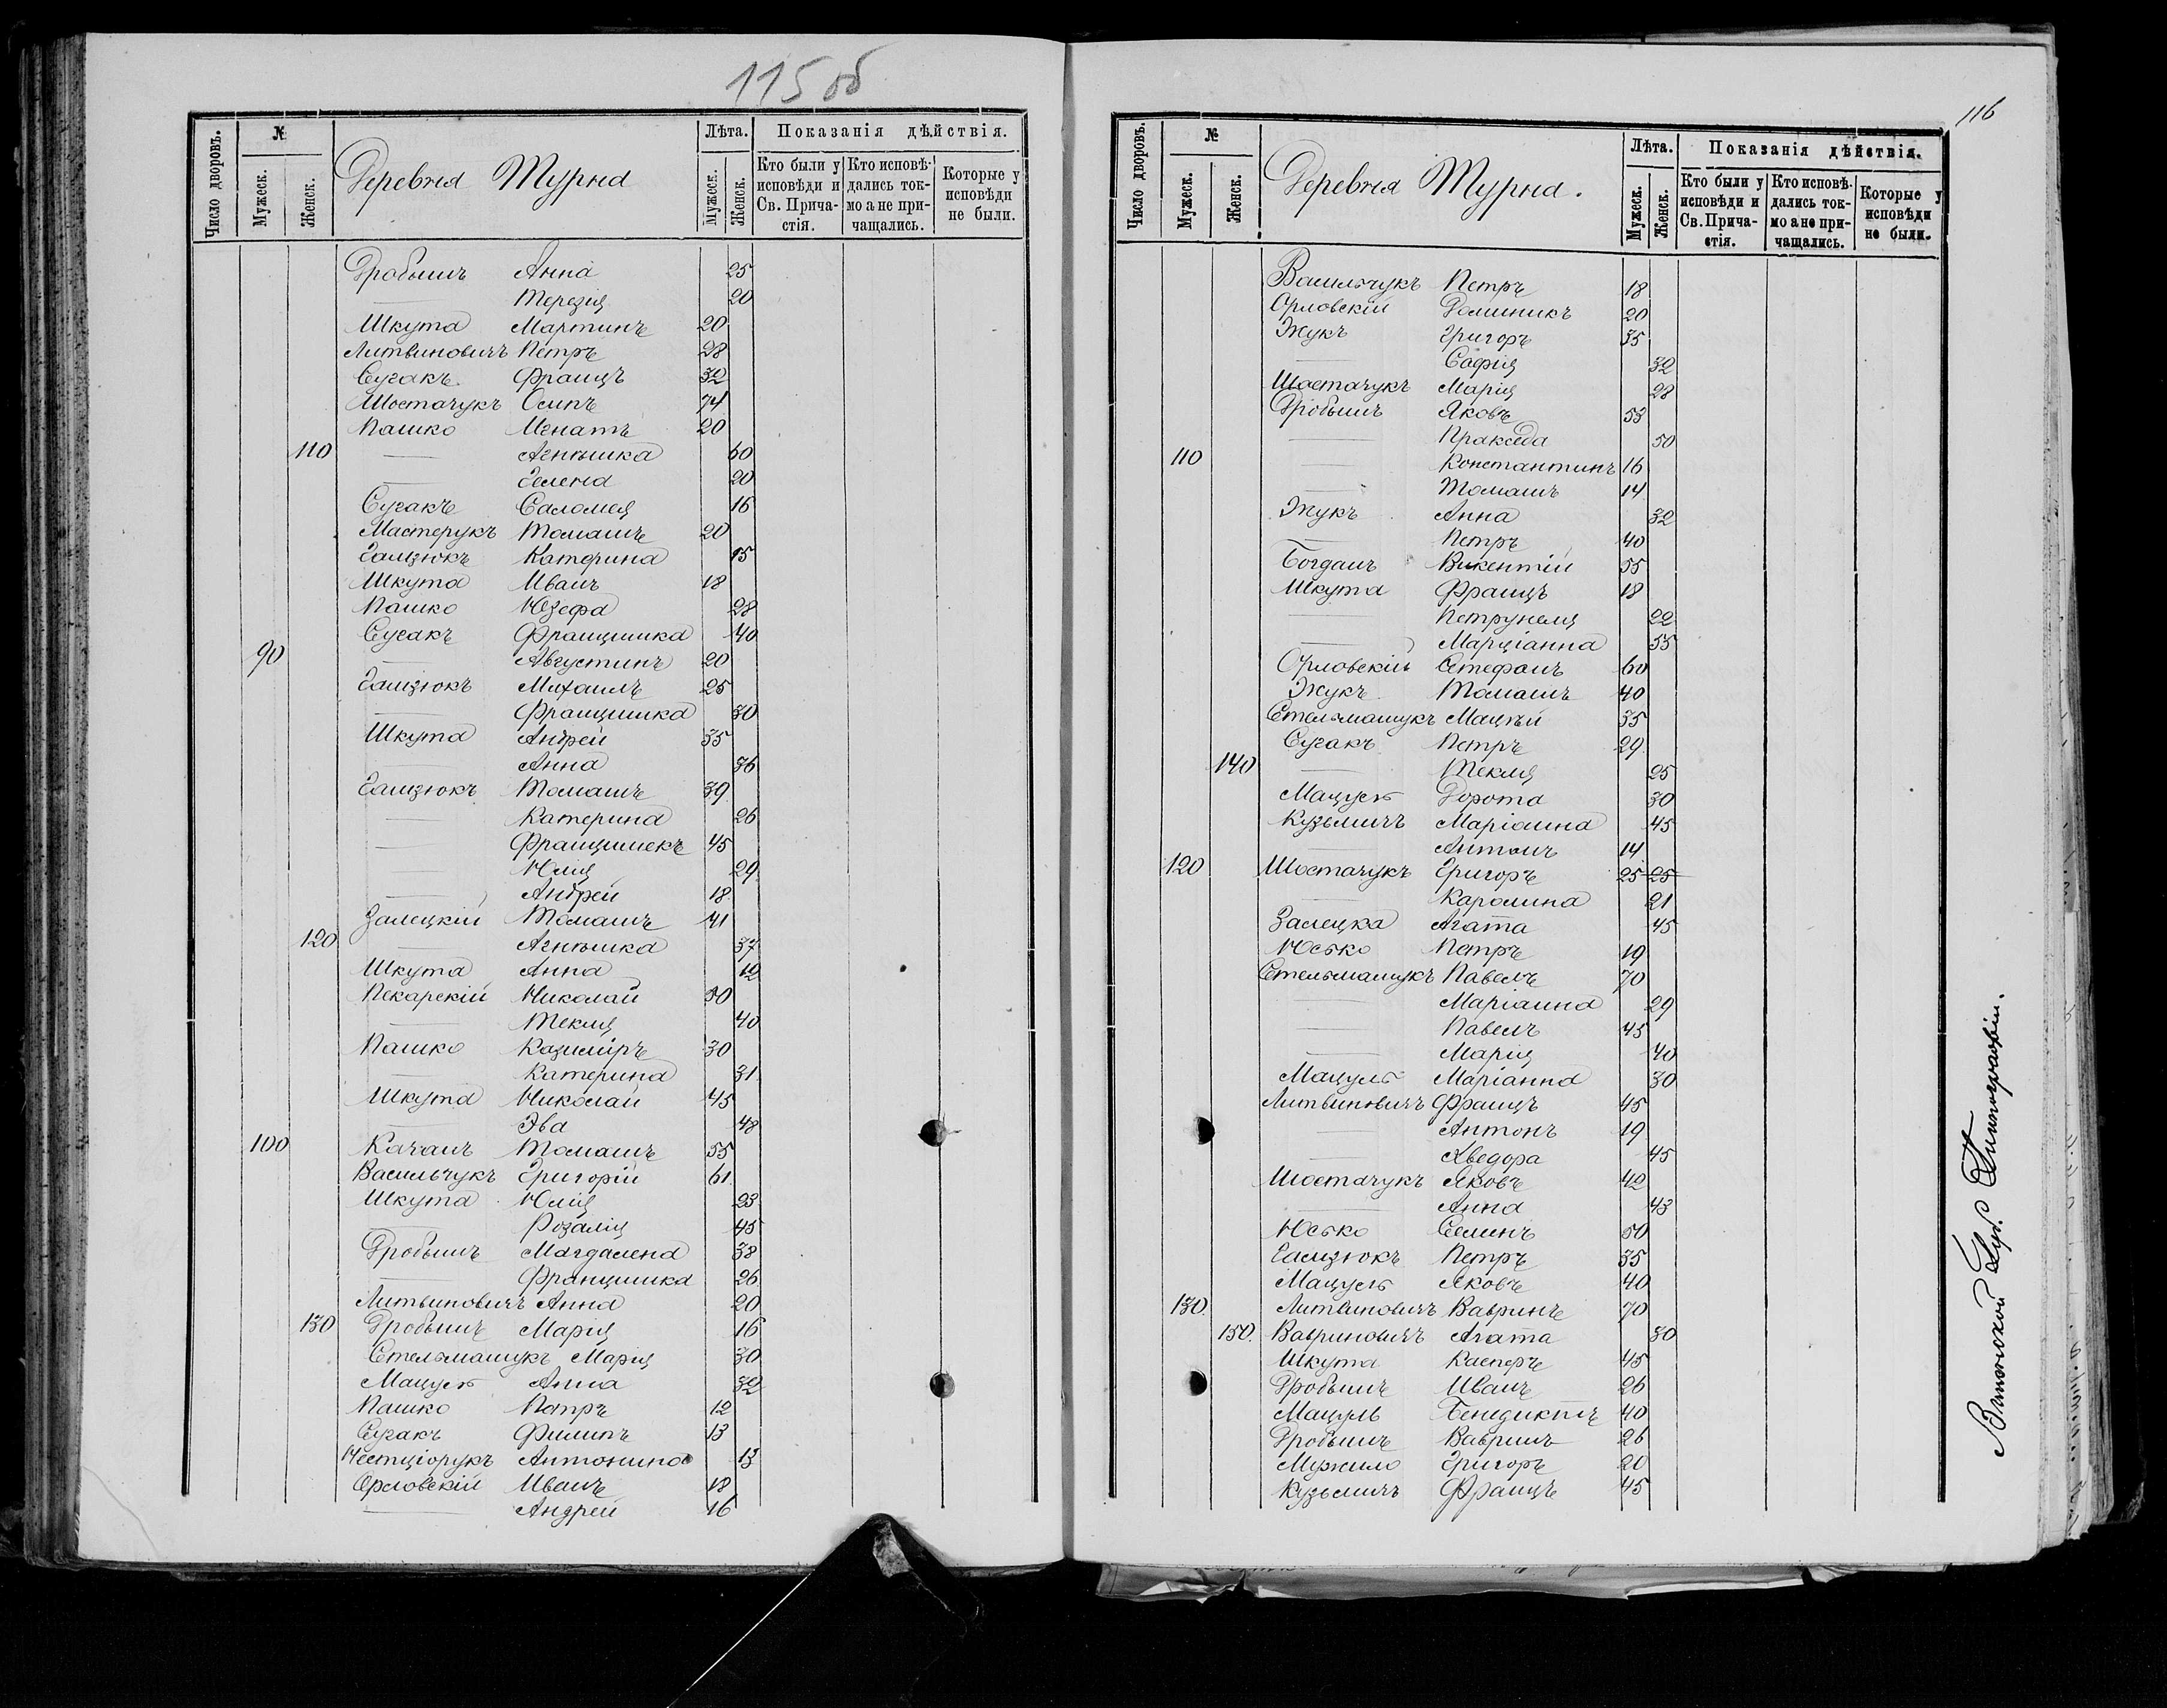 115 об
Число дворовъ.
№
Мужеск.
Женск.
Деревня Турна
Лѣта.
Мужеск.
Женск.
Показанія дѣйствія.
Кто были у исповѣди и Св. Прича-стія.
Кто исповѣ-дались ток-мо а не при-чащались.
Которые у исповѣди не были.
Дробышъ Анна 25
—— Терезія 20
Шкута Мартинъ 20
Литвиновичъ Петръ 28
Сугакъ Францъ 32
Шостачукъ Осипъ 74
Пашко Игнатъ 20
110 —— Агнѣшка 60
—— Гелена 20
Сугакъ Саломея 16
Мастерукъ Томашъ 20
Гализюкъ Катерина 15
Шкута Иванъ 18
Пашко Юзефа 28
Сугакъ Францишка 40
90 —— Августинъ 20
Гализюкъ Михаилъ 25
—— Францишка 30
Шкута Андрей 35
—— Анна 36
Гализюкъ Томашъ 39
—— Катерина 26
—— Францишекъ 45
—— Юлія 29
—— Андрей 18
Залецкій Томашъ 41
120 —— Агнѣшка 37
Шкута Анна 12
Пекарскій Николай 50
—— Текля 40
Пашко Казиміръ 30
—— Катерина 31
Шкута Николай 45
—— Эва 48
100 Качанъ Томашъ 55
Васильчукъ Григорій 61
Шкута Юлія 23
—— Розалія 45
Дробышъ Магдалена 38
—— Францишка 26
Литвиновичъ Анна 20
130 Дробышъ Марія 16
Стельмашукъ Марія 30
Мацуль Анна 32
Пашко Петръ 12
Сугакъ Филипъ 13
Нестціорукъ Антонина 13
Орловскій Иванъ 18
—— Андрей 16
116
Число дворовъ.
№
Мужеск.
Женск.
Деревня Турна.
Лѣта.
Мужеск.
Женск.
Показанія дѣйствія.
Кто были у исповѣди и Св. Прича-стія.
Кто исповѣ-дались ток-мо а не при-чащались.
Которые у исповѣди не были.
Васильчукъ Петръ 18
Орловскій Доминикъ 20
Жукъ Григоръ 35
—— Софія 32
Шостачукъ Марія 28
Дробышъ Яковъ 53
—— Пракседа 50
110 —— Константинъ 16
—— Томашъ 14
Жукъ Анна 32
—— Петръ 40
Богданъ Викентій 55
Шкута Францъ 18
—— Петрунеля 22
—— Марціанна 55
Орловскій Стефанъ 60
Жукъ Томашъ 40
Стельмашукъ Мацѣй 35
Сугакъ Петръ 29
140 —— Текля 25
Мацуль Дорота 30
Кузьмичъ Маріанна 45
—— Антонъ 14
120 Шостачукъ Григоръ 25 25
—— Каролина 21
Залецка Агата 45
Юсько Петръ 19
Стельмашукъ Павелъ 70
—— Маріанна 29
—— Павелъ 45
—— Марія 40
Мацуль Маріанна 30
Литвиновичъ Францъ 45
—— Антонъ 19
—— Аведора 45
Шостачукъ Яковъ 42
—— Анна 43
Юсько Семинъ 50
Гализюкъ Петръ 35
Мацуль Яковъ 40
130 Литвиновичъ Вавринъ 70
150. Вавриновичъ Агата 30
Шкута Касперъ 45
Дробышъ Иванъ 26
Мацуль Бенедиктъ 40
Дробышъ Вавринъ 26
Мужило Григоръ 20
Кузьмичъ Францъ 45
Типографіи.